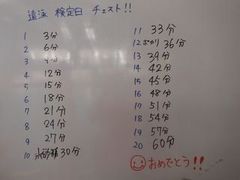 遠泳 検定日 チェスト!!
1 3分
2 6分
3 9分
4 12分
5 15分
6 18分
7 21分
8 24分
9 27分
10 氷砂糖 30分
11 33分
12 36分
13 39分
14 42分
15 45分
16 48分
17 51分
18 54分
19 57分
20 60分
おめでとう!!